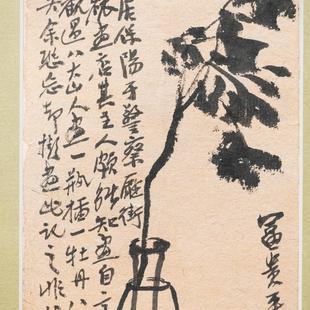 富貴平
居保陽于警察廳街
畫店其主人頗能知畫自言
觀過八大山人畫一瓶插一牡丹八
矣余忘却擬畫此記之非